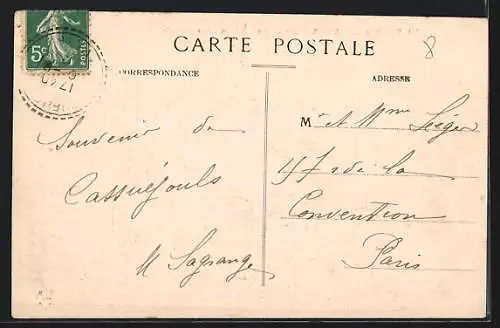 CARTE POSTALE
8
5c POSTES
CORRESPONDANCE
ADRESSE
Souvenir de
Cassuéjouls
M Lagrange
Mr et Mme Léger
47 r de la
Convention
Paris